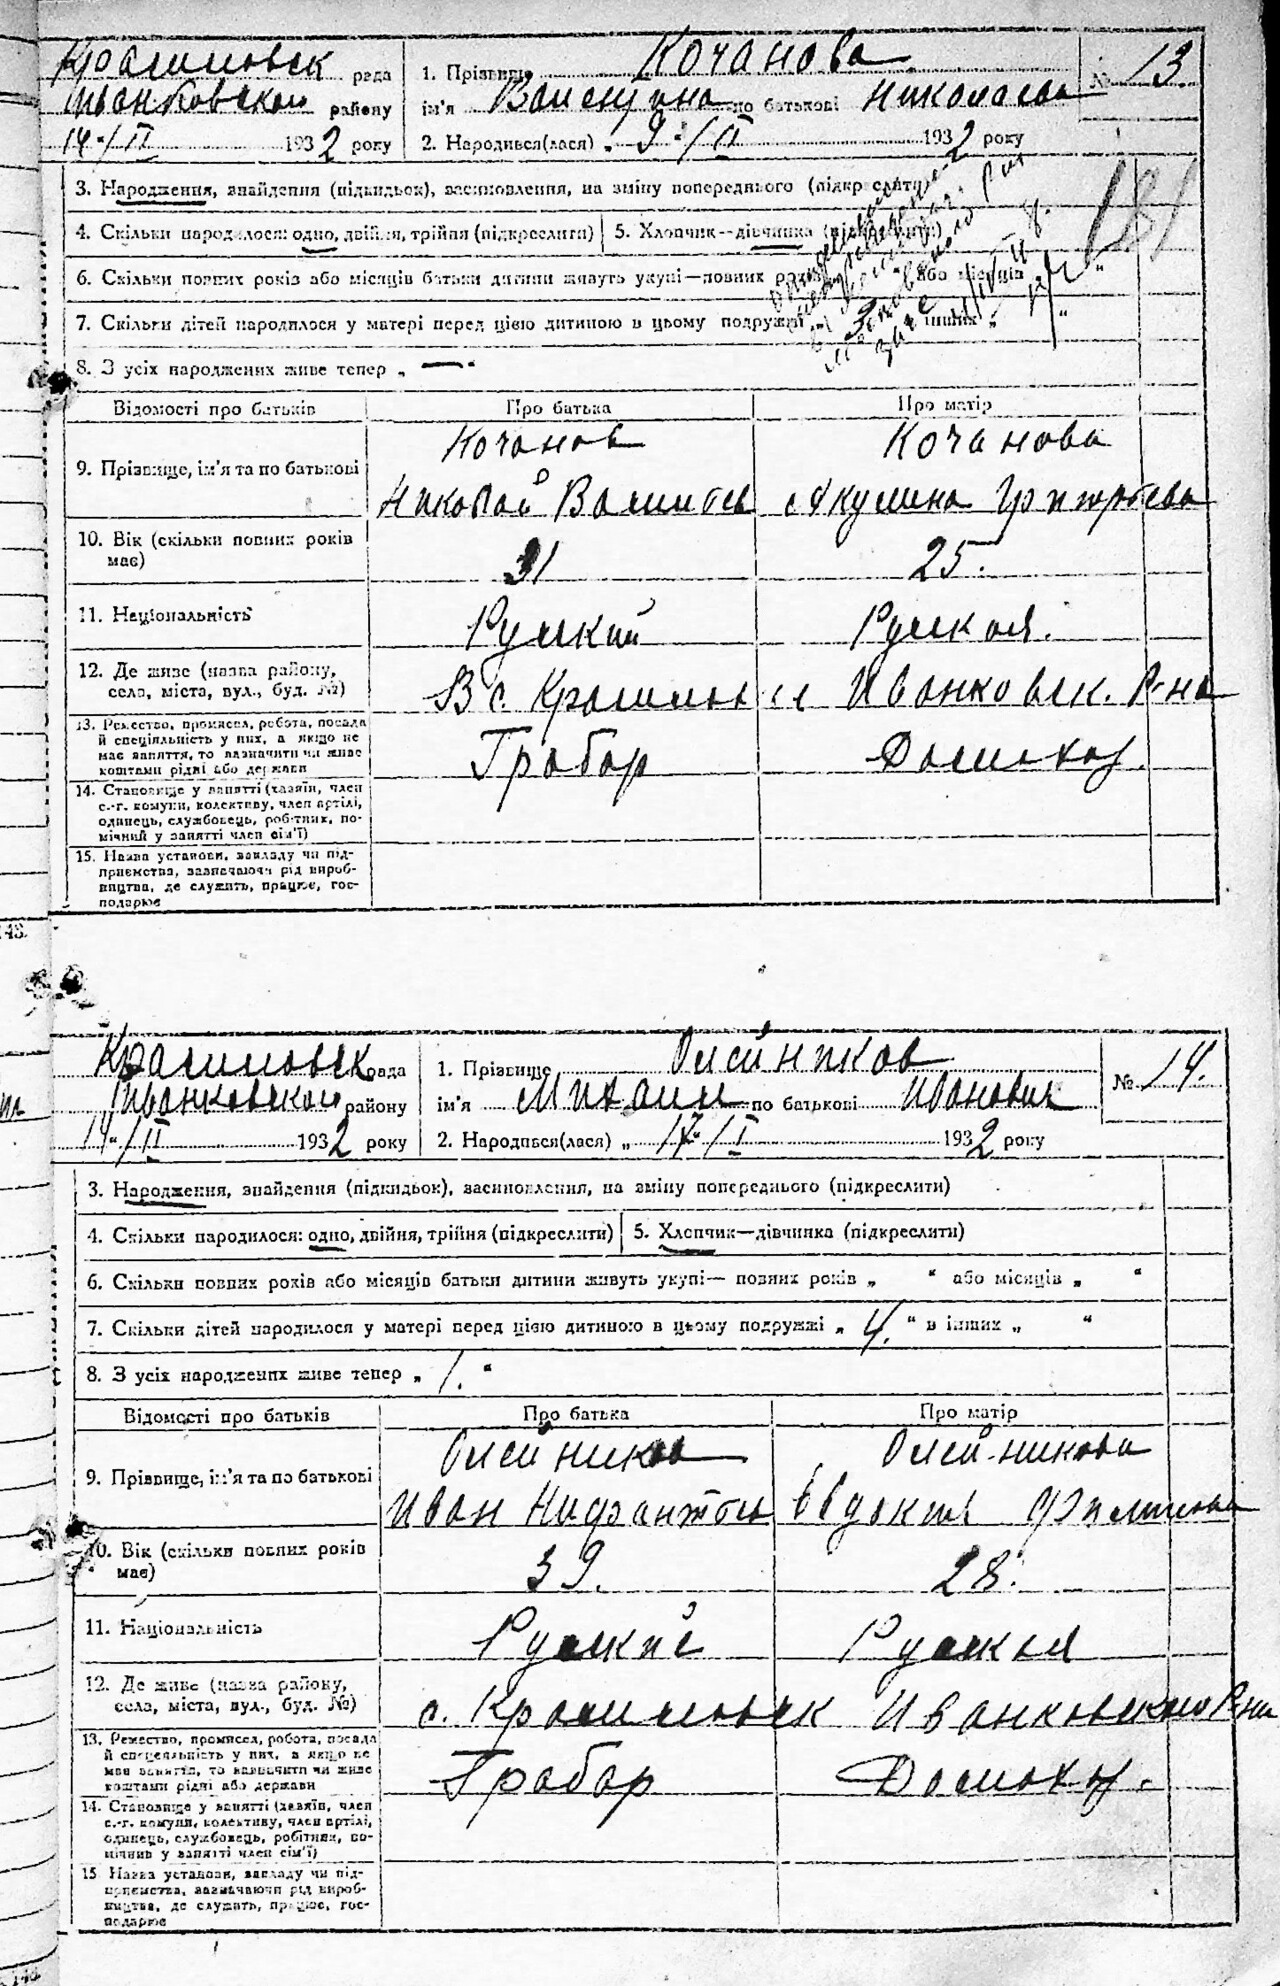 рада
району
14/II 1932 року
1. Прізвище Кочанова
ім'я Валентина по батькові Николаева
2. Народився(лася) „ 9 "/II 1932 року
№ 13
3. Народження, знайдення (підкидьок), засиновлення, на зміну попереднього (підкреслити)
4. Скільки народилося: одно, двійня, трійня (підкреслити) 5. Хлопчик—дівчинка (підкреслити)
6. Скільки повних років або місяців батьки дитини живуть укупі—повних років або місяців "
7. Скільки дітей народилося у матері перед цією дитиною в цьому подружжі інших „ "
8. З усіх народжених живе тепер „ — "
181
Відомості про батьків Про батька Про матір
Кочанов Кочанова
9. Прізвище, ім'я та по батькові
Николай Акулина
10. Вік (скільки повних років має)
31 25.
11. Національність
Руский Руская.
12. Де живе (назва району,
села, міста, вул., буд. №)
В с. Иванковск. Р-на
13. Ремество, промисел, робота, посада
й спеціяльність у них, а якщо не
має заняття, то зазначити чи живе
коштами рідні або держави
Грабар Домохоз.
14. Становище у занятті (хазяїн, член
с.-г. комуни, колективу, член артілі,
одинець, службовець, робітник, по-
мічний у занятті член сім'ї)
15. Назва установи, закладу чи під-
приємства, зазначаючи рід вироб-
ництва, де служить, працює, гос-
подарює
148.
рада
Иванковской району
14/II 1932 року
1. Прізвище Олейников
ім'я Михаил по батькові Иванович
2. Народився(лася) „ 17"/I 1932 року
№ 14.
3. Народження, знайдення (підкидьок), засиновлення, на зміну попереднього (підкреслити)
4. Скільки народилося: одно, двійня, трійня (підкреслити) 5. Хлопчик—дівчинка (підкреслити)
6. Скільки повних років або місяців батьки дитини живуть укупі— повних років „ " або місяців „ "
7. Скільки дітей народилося у матері перед цією дитиною в цьому подружжі „ 4. " в інших „ "
8. З усіх народжених живе тепер „ 1. "
Відомості про батьків Про батька Про матір
Олейников Олейникова
9. Прізвище, ім'я та по батькові
Иван
10. Вік (скільки повних років має)
39. 28.
11. Національність
Руский Руская
12. Де живе (назва району,
села, міста, вул., буд. №)
с. Иванковского Р-на
13. Ремество, промисел, робота, посада
й спеціяльність у них, а якщо не
має заняття, то зазначити чи живе
коштами рідні або держави
Грабар Домохоз.
14. Становище у занятті (хазяїн, член
с.-г. комуни, колективу, член артілі,
одинець, службовець, робітник, по-
мічний у занятті член сім'ї)
15. Назва установи, закладу чи під-
приємства, зазначаючи рід вироб-
ництва, де служить, працює, гос-
подарює